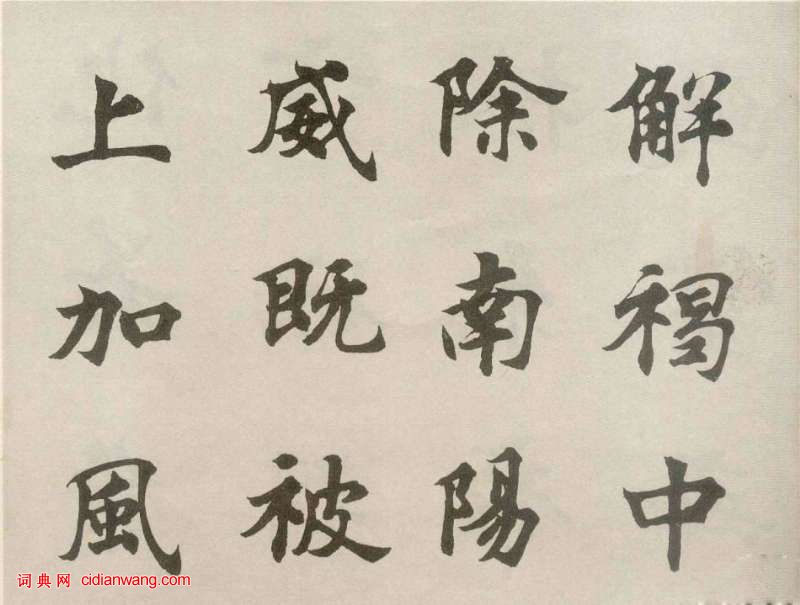 解褐中
除南陽
威既被
上加風
词典网 cidianwang.com